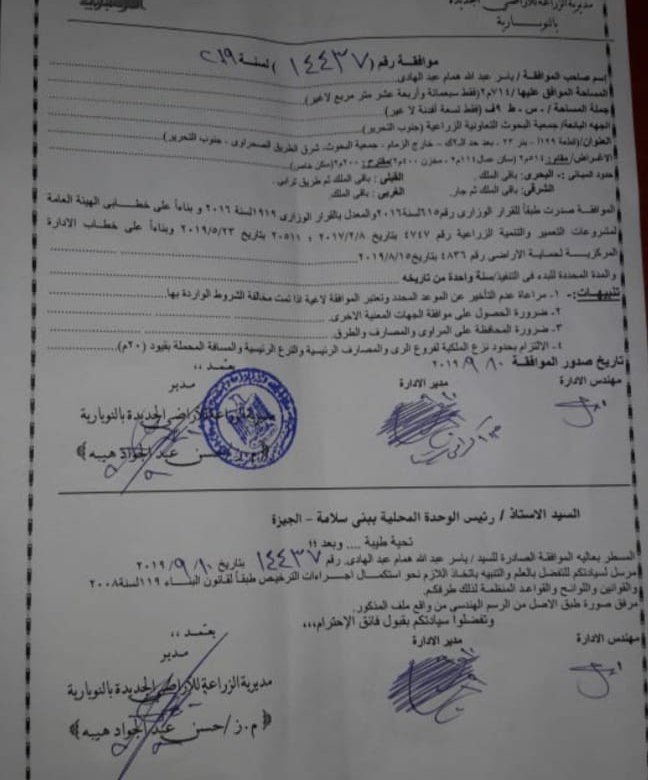 مديرية الزراعة للأراضى الجديدة
بالنوبارية
موافقة رقم ( ١٤٤٣٧ ) لسنة ٢٠١٩
إسم صاحب الموافقة / ياسر عبد الله همام عبد الهادى.
المساحة الموافق عليها /٧١٤م٢(فقط سبعمائة وأربعة عشر متر مربع لاغير)
جملة المساحة / - س - ط ٩ف (فقط تسعة أفدنة لا غير)
الجهه البائعة/ جمعية البحوث التعاونية الزراعية (جنوب التحرير)
العنوان/ (قطعة ١٢٩/ - بئر ٢٣ - بعد حد الـ٢ك - خارج الزمام - جمعية البحوث- شرق الطريق الصحراوى - جنوب التحرير)
الأغراض/ مقنن: ٥١٤م٢ (سكن عمال ١١٤م٢ - مخزن ٤٠٠م٢) مقترح: ٢٠٠م٢(سكن خاص)
حدود المبانى :- البحرى: باقى الملك . القبلى : باقى الملك ثم طريق ترابي.
الشرقي: باقى الملك ثم جار. الغربى : باقى الملك.
الموافقة صدرت طبقاً للقرار الوزارى رقم٦١٥لسنة٢٠١٦والمعدل بالقرار الوزارى ١٩١٩لسنة ٢٠١٦ و بناءاً على خطابى الهيئة العامة
لمشروعات التعمير والتنمية الزراعية رقم ٤٧٤٧ بتاريخ ٢٠١٧/٢/٨ ؛ ٢٠٥١١ بتاريخ ٢٠١٩/٥/٢٣ وبناءاً على خطاب الادارة
المركزية لحماية الاراضى رقم ٤٨٣٦ بتاريخ٢٠١٩/٨/١٥
والمدة المحددة للبدء فى التنفيذ/سنة واحدة من تاريخه
تنبيهات:- ١- مراعاة عدم التأخير عن الموعد المحدد وتعتبر الموافقة لاغية اذا تمت مخالفة الشروط الواردة بها
٢- ضرورة الحصول على موافقة الجهات المعنية الاخرى.
٣- ضرورة المحافظة على المراوى والمصارف والطرق.
٤- الالتزام بحدود نزع الملكية لفروع الرى والمصارف الرئيسية والترع الرئيسية والمسافة المحملة بقيود (٢٠م)
تاريخ صدور الموافقة ٢٠١٩/٩/١٠
يعتمد ،،
مهندس الادارة مدير الادارة مدير
مديرية الزراعة للأراضي الجديدة بالنوبارية
( م.ز/حسن عبد الجواد هيبه )
السيد الاستاذ / رئيس الوحدة المحلية ببنى سلامة - الجيزة
تحية طيبة .... وبعد !!
المسطر بعاليه الموافقة الصادرة للسيد / ياسر عبد الله همام عبد الهادى. رقم ١٤٤٣٧ بتاريخ ٢٠١٩/٩/١٠
مرسل لسيادتكم للتفضل بالعلم والتنبيه باتخاذ اللازم نحو استكمال اجراءات الترخيص طبقاً لقانون البناء ١١٩لسنة٢٠٠٨
والقوانين واللوائح والقواعد المنظمة لذلك طرفكم.
مرفق صورة طبق الاصل من الرسم الهندسي من واقع ملف المذكور.
وتفضلوا سيادتكم بقبول فائق الإحترام،،،
يعتمد ،،
مهندس الادارة مدير الادارة مدير
مديرية الزراعة للأراضي الجديدة بالنوبارية
( م.ز/حسن عبد الجواد هيبه )